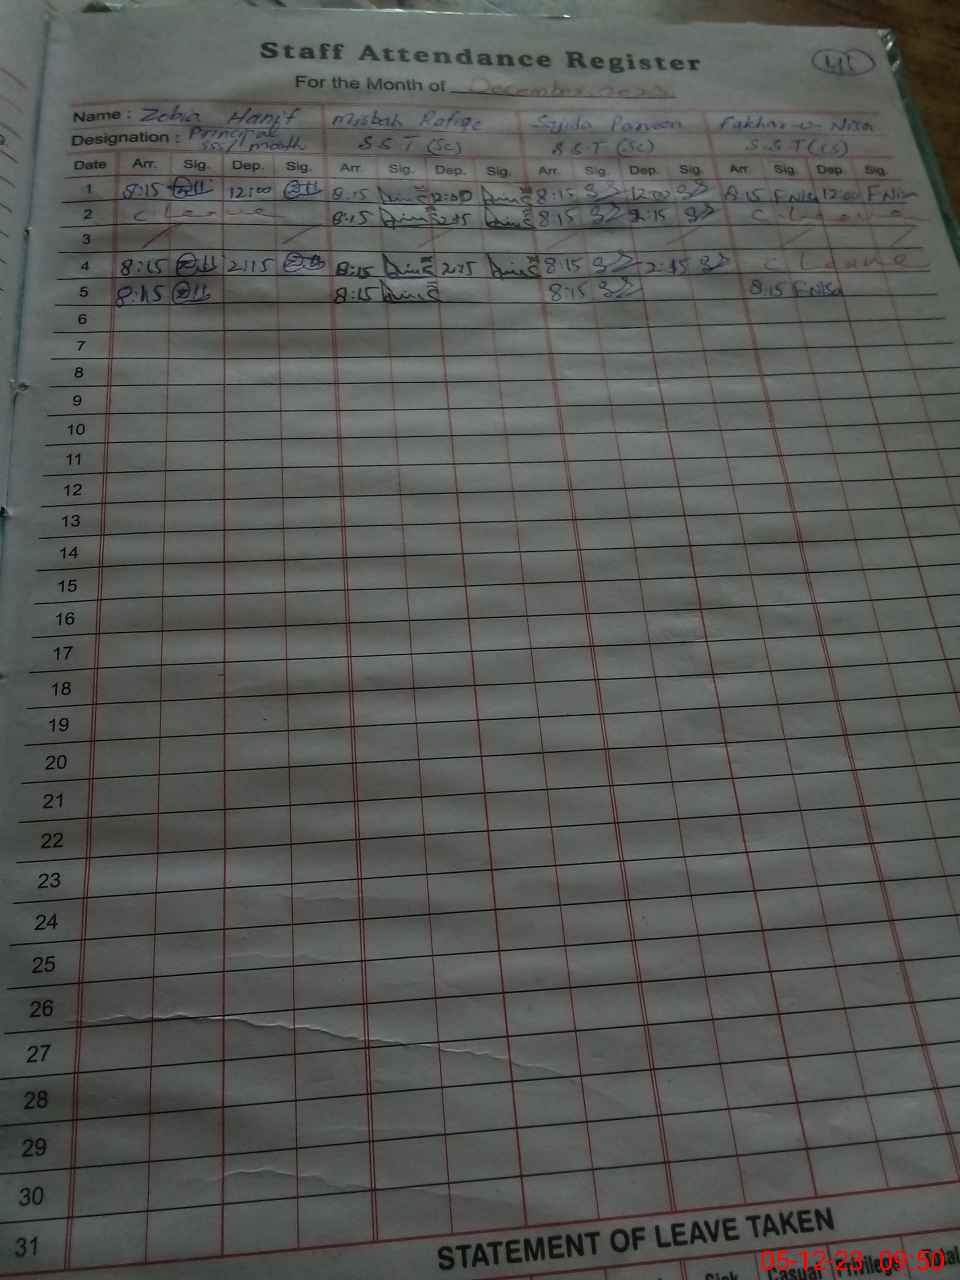 Staff Attendance Register
41
For the Month of December 2023
Name : Zebia Hanif Misbah Rafiqe Syida Parveen Fakhar-u-Nisa
Designation : Principal SSS/math S.S.T (Sc) S.S.T (Sc) S.S.T (CS)
Date Arr. Sig. Dep. Sig. Arr. Sig. Dep. Sig. Arr. Sig Dep. Sig. Arr. Sig. Dep Sig.
1 8:15 12:00 8:15 12:00 8:15 12:00 8:15 F.Nisa 12:00 F.Nisa
2 C Leave 8:15 2:15 8:15 2:15 C. Leave
3
4 8:15 2:15 8:15 2:15 8:15 2:15 C Leave
5 8:15 8:15 8:15 8:15 F.Nisa
6
7
8
9
10
11
12
13
14
15
16
17
18
19
20
21
22
23
24
25
26
27
28
29
30
31
STATEMENT OF LEAVE TAKEN
Sick Casual Privilege Total
05-12-23 09:50